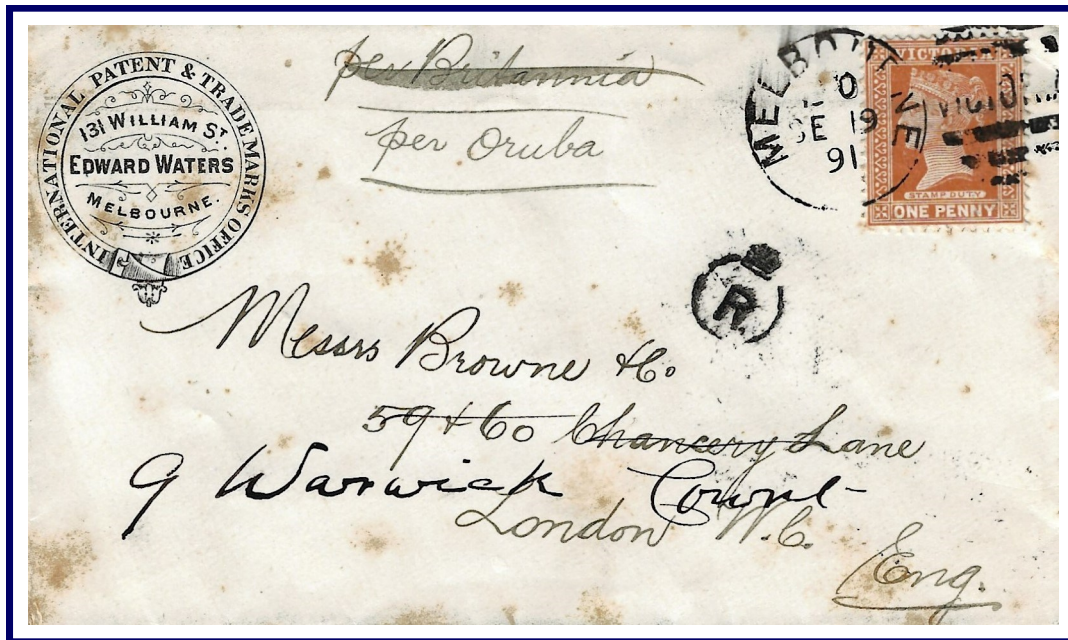 INTERNATIONAL PATENT & TRADE MARKS OFFICE
131 WILLIAM ST.
EDWARD WATERS
MELBOURNE.
per Britannia
per Oruba
MELBOURNE
SE 19
91
VICTORIA
STAMP DUTY
ONE PENNY
R
Messrs Browne & Co.
59 & 60 Chancery Lane
9 Warwick Court
London W.C.
Eng.